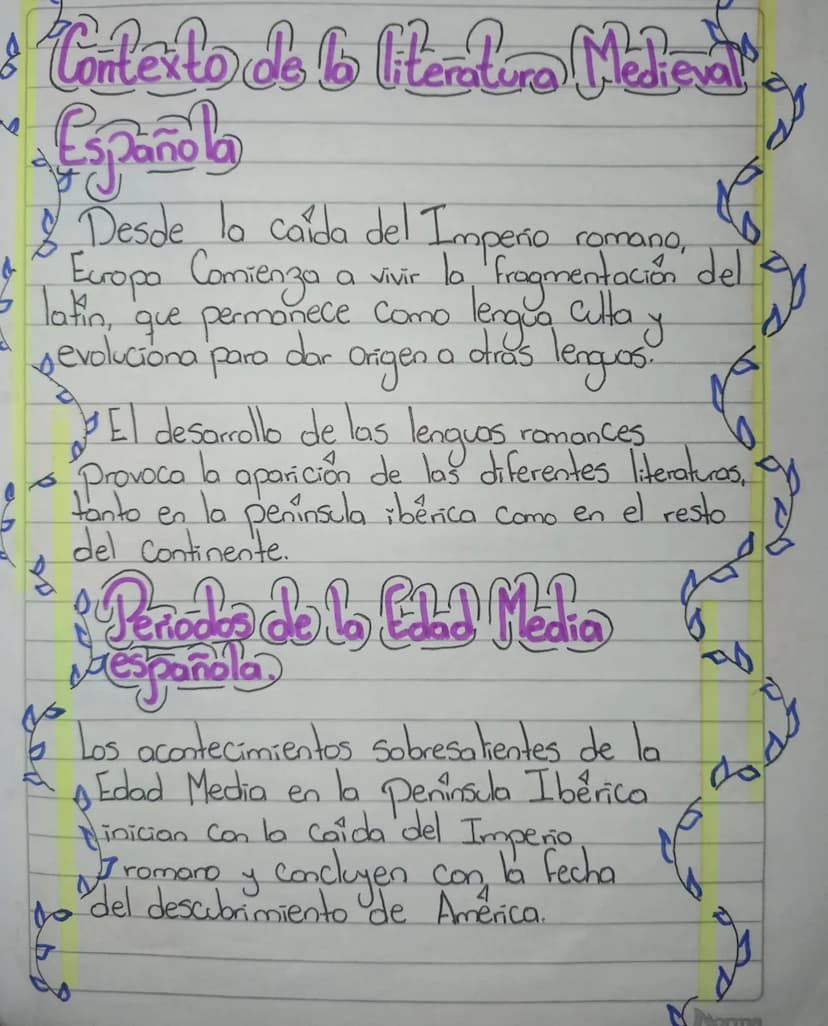 Contexto de la literatura Medieval
Española
Desde la caída del Imperio romano,
Europa Comienza a vivir la fragmentación del
latín, que permanece como lengua culta y
evoluciona para dar origen a otras lenguas.
El desarrollo de las lenguas romances
Provoca la aparición de las diferentes literaturas,
tanto en la península ibérica como en el resto
del continente.
Periodos de la Edad Media
española.
Los acontecimientos sobresalientes de la
Edad Media en la península Ibérica
inician con la caída del Imperio
romano y concluyen con la fecha
del descubrimiento de América.
Norma